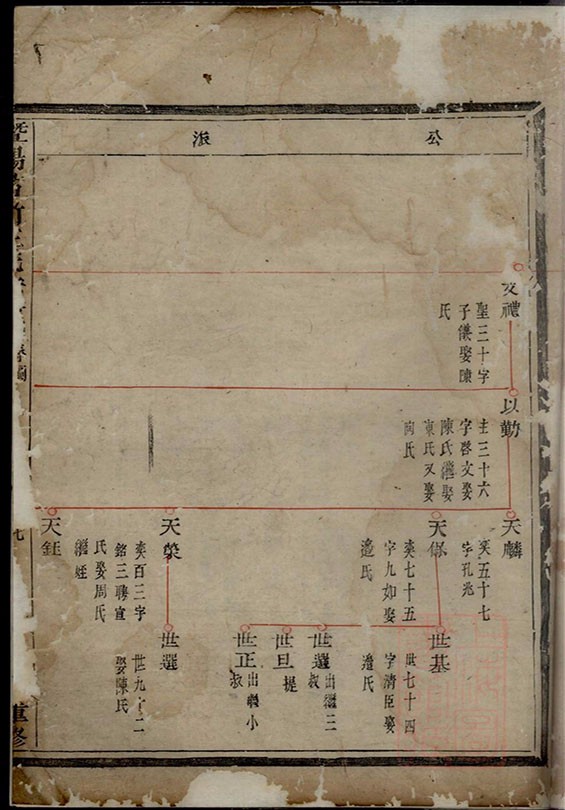 公
派
文禮
聖三十字
子儀娶陳
氏
以勤
主三十六
字啓文娶
陳氏繼娶
東氏又娶
陶氏
天麟
奕五十七
字孔兆
天保
奕七十五
字九如娶
邉氏
天榮
奕百三字
銘三聘宣
氏娶周氏
繼姪
天鈺
世基
世七十四
字清臣娶
邉氏
世選
出繼三
叔
世旦
提
世正
出繼小
叔
世選
世九十二
娶陳氏
暨陽
重修